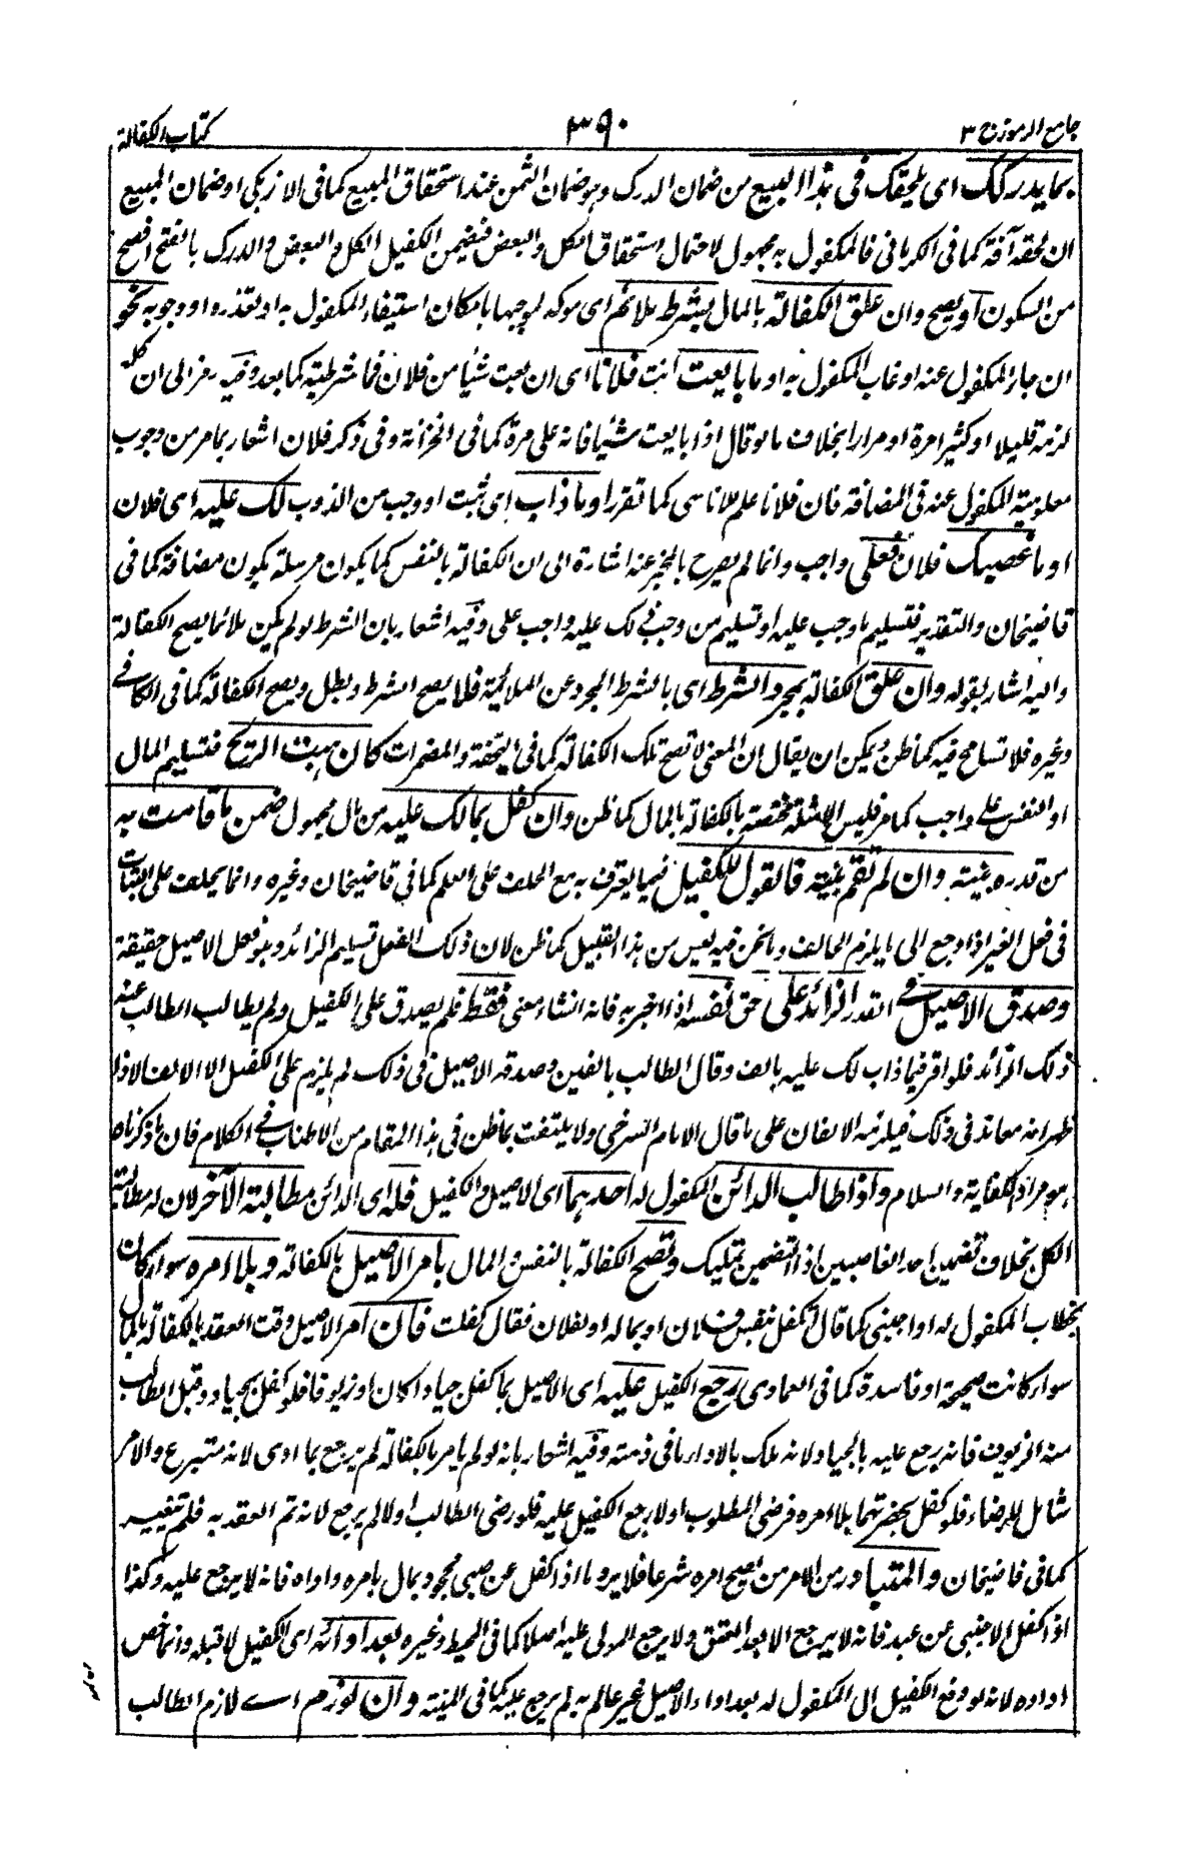 جامع الرموز ج ٣
٣٩٠
كتاب الكفالة
بما يدركك اى يلحقك فى هذا البيع من ضمان الدرك وهو ضمان الثمن عند استحقاق المبيع كما فى الازبكى او ضمان المبيع
ان لحقه آفة كما فى الكرمانى فالمكفول به مجهول لاحتمال استحقاق الكل والبعض فيضمن الكفيل الكل والبعض والدرك بالفتح افصح
من السكون او يصح وان علق الكفالة بالمال بشرط ملائم اى موكد لموجبها بامكان استيفاء المكفول به او تعذره او وجوبه نحو
ان جاء المكفول عنه او غاب المكفول به او ما بايعت انت فلانا اى ان بعت شيأ من فلان فما شرطية كما بعد وفيه رمز الى ان كله
لزمه قليلا او كثيرا مرة او مرارا بخلاف ما لو قال اذا بايعت شيأ فانه على مرة كما فى الخزانة وفى ذكر فلان اشعار بما مر من وجوب
معلومية المكفول عنه فى المضافة فان فلانا علم للاناسى كما تقرر او ما ذاب اى ثبت او وجب من الذوب لك عليه اى فلان
او ما غصبك فلان فعلى واجب وانما لم يصرح بالمخبر عنه اشارة الى ان الكفالة بالنفس كما يكون مرسلة يكون مضافة كما فى
قاضيخان والتقدير فتسليم ما وجب عليه او تسليم من وجب لك عليه واجب على وفيه اشعار بان الشرط لو لم يكن ملائما يصح الكفالة
واليه اشار بقوله وان علق الكفالة بمجرد الشرط اى بالشرط المجرد عن الملائمة فلا يصح الشرط ويطل ويصح الكفالة كما فى الكافى
وغيره فلا تسامح فيه كما ظن ويمكن ان يقال ان المعنى لا تصح تلك الكفالة كما فى التحفة والمضمرات كان هبت الريح فتسليم المال
او النفس على واجب كما مر فليس الامثلة مختصة بالكفالة بالمال كما ظن وان كفل بمالك عليه من مال مجهول ضمن ما قامت به
من قدره بينة وان لم تقم بينة فالقول للكفيل فيما يعترف به مع الحلف على العلم كما فى قاضيخان وغيره وانما يحلف على البتات
فى فعل الغير اذا رجع الى ما يلزم الحالف وما نحن فيه ليس من هذا القبيل كما ظن لان ذلك الفعل تسليم الزائد وهو فعل الاصيل حقيقة
وصدق الاصيل فى القدر الزائد على حق نفسه اذا اخبر به فانه انشاء معنى فقط فلم يصدق على الكفيل ولم يطالب الطالب عنه
ذلك الزائد فلو اقر فيما ذاب لك عليه بالف وقال الطالب بالفين وصدقه الاصيل فى ذلك لم يلزم على الكفيل الا الالف الا اذا
ظهر انه معاند فى ذلك فيلزمه الالفان على ما قال الامام السرخسى ولا يلتفت بما ظن فى هذا المقام من الاطناب فى الكلام فان ما ذكرناه
هو مراد الكفاية والسلام واذا طالب الدائن المكفول له احدهما اى الاصيل والكفيل فله اى الدائن مطالبة الآخر لان له مطالبة
الكل بخلاف تضمين احد الغاصبين اذ التضمين تمليك وتصح الكفالة بالنفس والمال بامر الاصيل بالكفالة وبلا امره سواء كان
بخطاب المكفول له او اجنبى كما قال تكفل بنفس فلان او بماله او لفلان فقال كفلت فان امر الاصيل وقت العقد بالكفالة بالمال
سواء كانت صحيحة او فاسدة كما فى العمادى رجع الكفيل عليه اى الاصيل بما كفل جيادا كان او زيوفا فلو كفل بجياد وقبل الطالب
منه الزيوف فانه يرجع عليه بالجياد لانه ملك بالاداء ما فى ذمته وفيه اشعار بانه لو لم يأمر بالكفالة لم يرجع بما ادى لانه متبرع والامر
شامل للرضاء فلو كفل بحضرتهما بلا امره فرضى المطلوب اولا رجع الكفيل عليه فلو رضى الطالب اولا لم يرجع لانه تم العقد به فلم يتغيير
كما فى قاضيخان والمتبادر من الامر من يصح امره شرعا فلا يرد ما اذا كفل عن صبى محجور بمال بامره واداه فانه لا يرجع عليه وكذا
اذا كفل الاجنبى عن عبد فانه لا يرجع الا بعد العتق ولا يرجع المولى عليه اصلا كما فى المحيط وغيره بعد ادائه اى الكفيل لا قبله وانما خص
اداءه لانه لو دفع الكفيل الى المكفول له بعد اداء الاصيل غير عالم به لم يرجع عليه كما فى المنية وان لوزم اے لازم الطالب